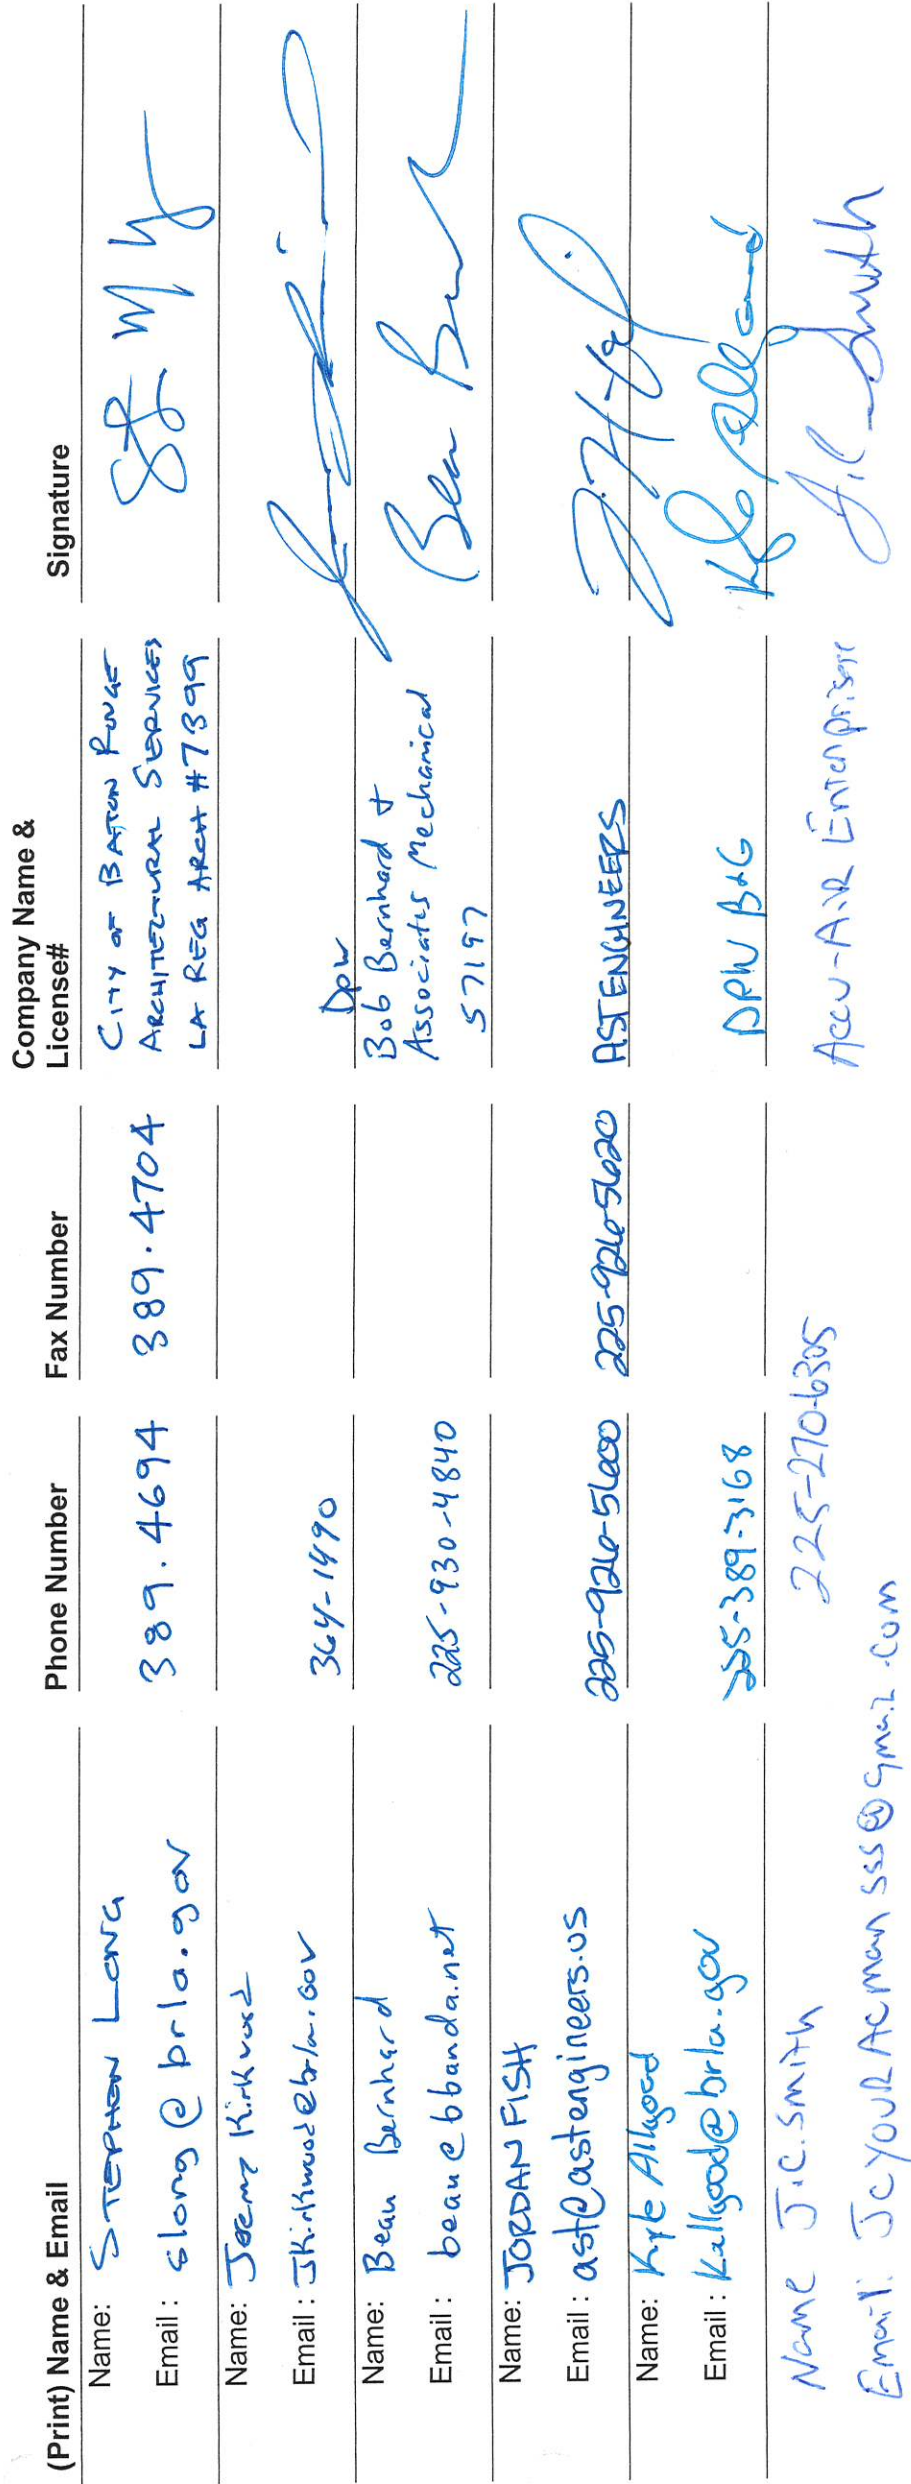 (Print) Name & Email Phone Number Fax Number Company Name & License# Signature
Name: STEPHEN LONG
Email : slong@brla.gov 389.4694 389.4704 CITY OF BATON ROUGE
ARCHITECTURAL SERVICES
LA REG ARCH #7399
Name: Jeremy Kirkwood
Email : JKirkwood@brla.gov 364-1490 DPW
Name: Beau Bernhard
Email : beau@bbanda.net 225-930-4840 Bob Bernhard +
Associates Mechanical
57197
Name: JORDAN FISH
Email : ast@astengineers.us 225-926-5600 225-926-5620 AST ENGINEERS
Name: Kyle Allgood
Email : Kallgood@brla.gov 225-389-3168 DPW B&G
Name J.C. Smith 225-270-6305 Accu-Air Enterprise
Email: JcYOURACman555@gmail.com